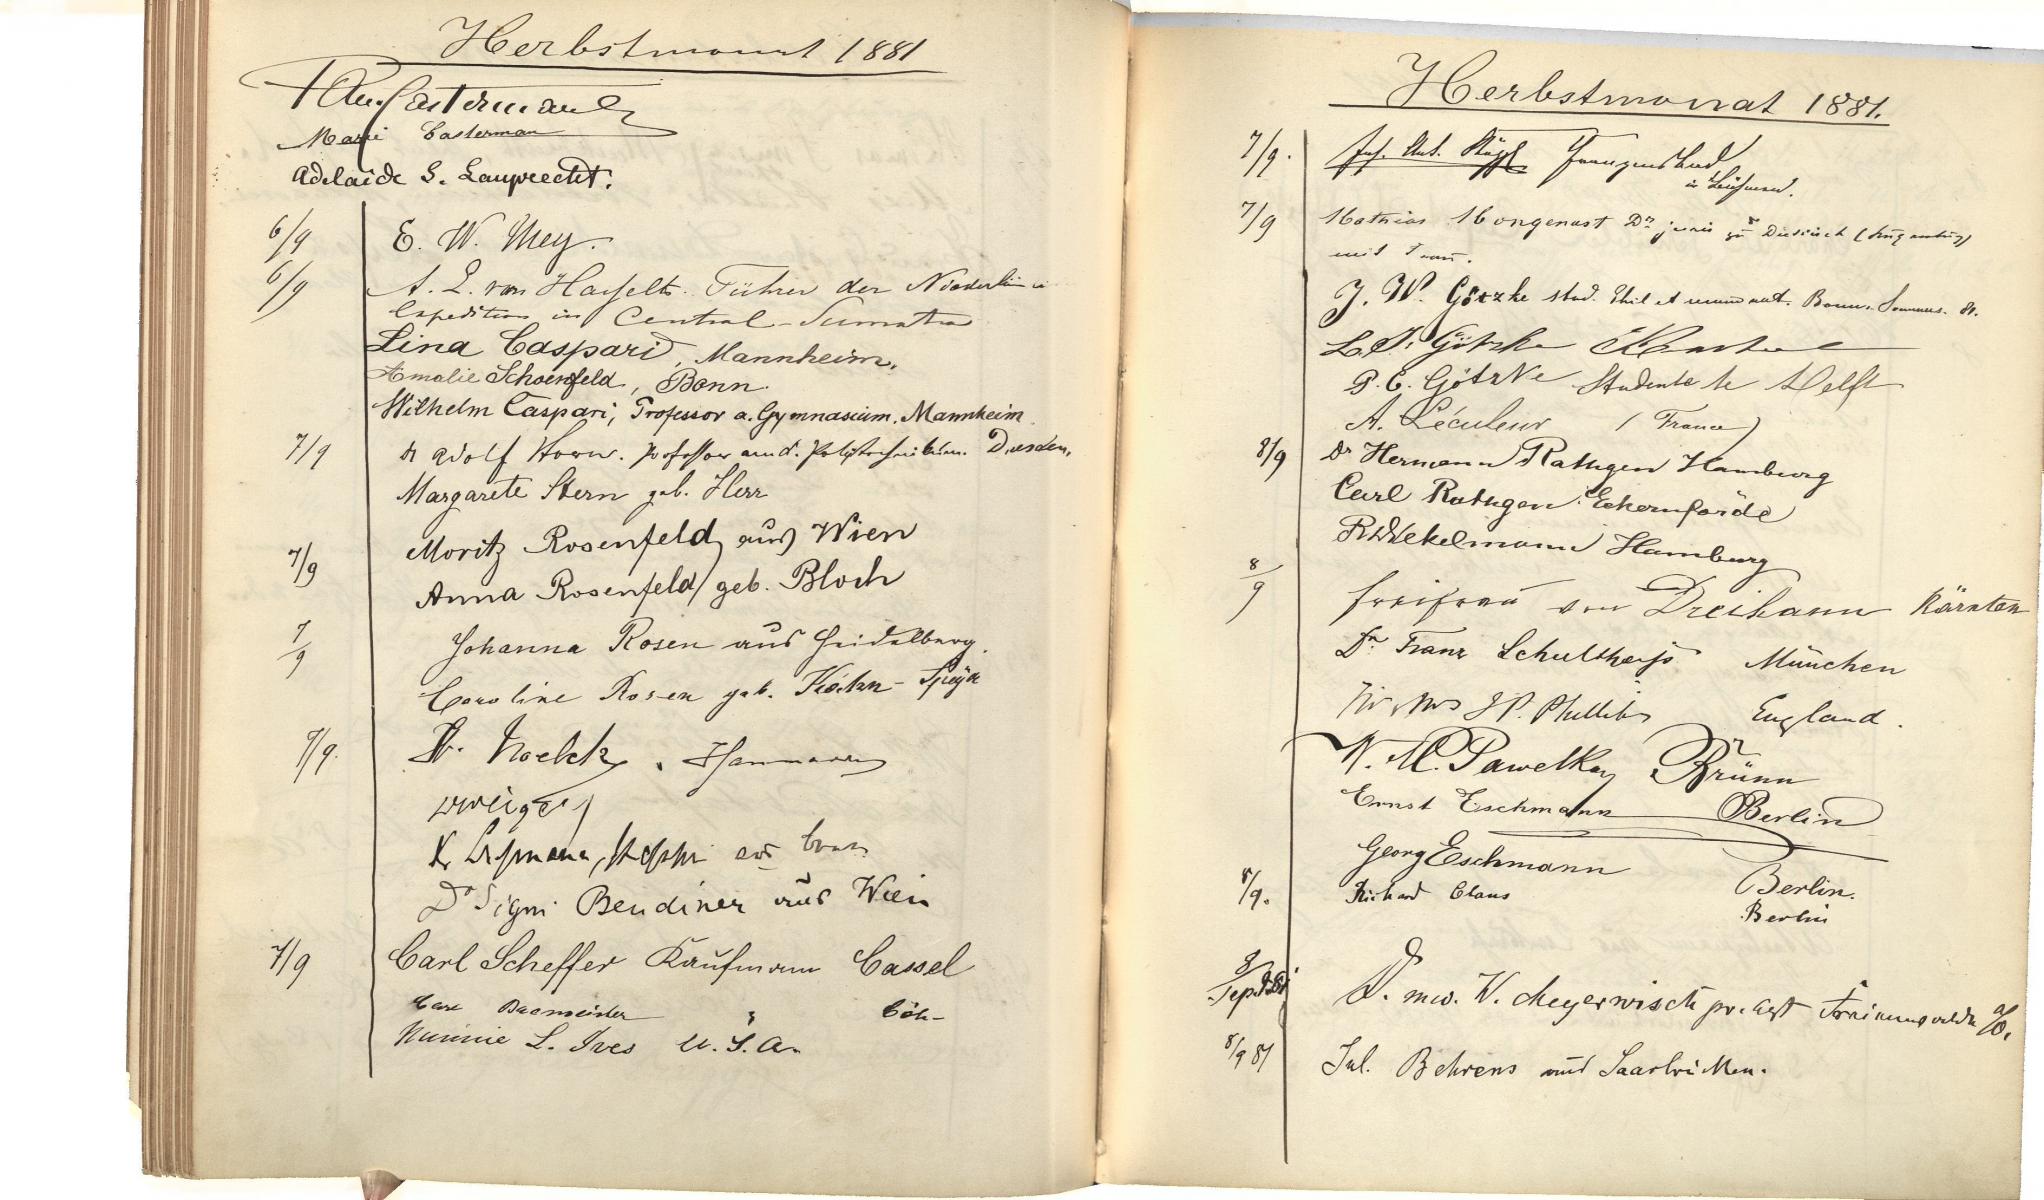 Herbstmonat 1881
Casterman
Marie Casterman
Adelaide G. Lauprecht.
6/9 E. W. Mey.
6/9 A. L. van Hasselt. Führer der
Expedition in Central-Sumatra
Lina Caspari, Mannheim.
Amalie Schoenfeld, Bonn.
Wilhelm Caspari, Professor a. Gymnasium. Mannheim
7/9 Dr Adolf Stern. Professor am d. Polytechnikum. Dresden.
Margarete Stern geb. Herr
7/9 Moritz Rosenfeld aus Wien
Anna Rosenfeld geb. Bloch
7/9 Johanna Rosen aus Heidelberg.
Caroline Rosen geb.
7/9. Dr. Noelck, Hannover
Dr Sigm Bendiner aus Wien
7/9 Carl Scheffer Kaufmann Cassel
Carl Baumeister "
L. Ives U.S.A.
Herbstmonat 1881.
7/9.
7/9 Mathias Mongenast Dr juris zu Diekirch (Luxemburg)
mit Frau.
J. W. Götzke stud. Phil et nat. Bonn.
Götzke
P. C. Götzke Student te Delft
A. Léculeur (France)
8/9 Dr Hermann Rathgen Hamburg
Carl Rathgen Eckernförde
Hamburg
8/9 Freifrau von Dreihann Kärnten
Dr Franz Schultheiß München
Mr & Mrs J P. Phillibs England.
W. M. Pawelka, Brünn
Ernst Eschmann Berlin
Georg Eschmann Berlin.
8/9. Richard Claus Berlin
8/Sept. 81 Dr. med. W. Meyerwisch pr. Arzt Freienwalde a/O.
8/9 81 Jul. Behrens aus Saarbrücken.